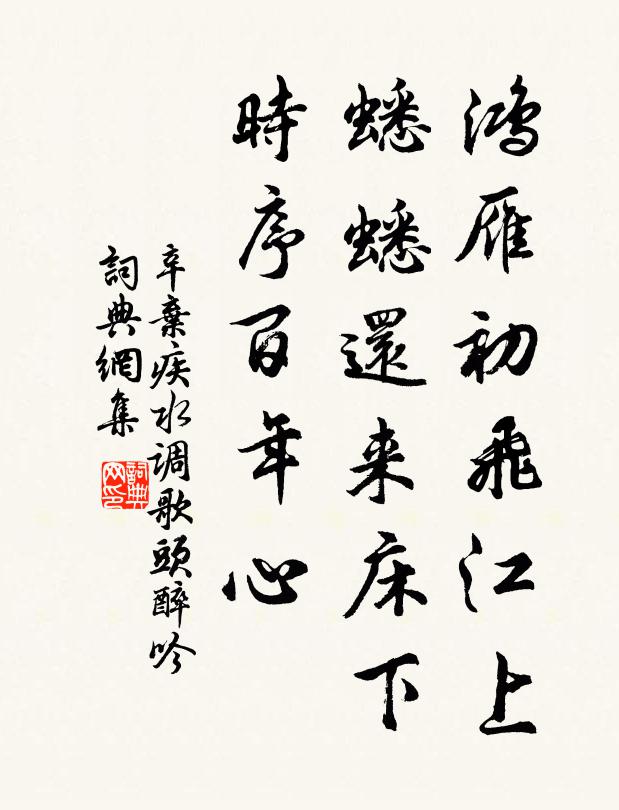 鴻雁初飛江上
蟋蟋還来床下
時序百年心
辛棄疾水调歌頭醉吟
詞典網集
詞典网印